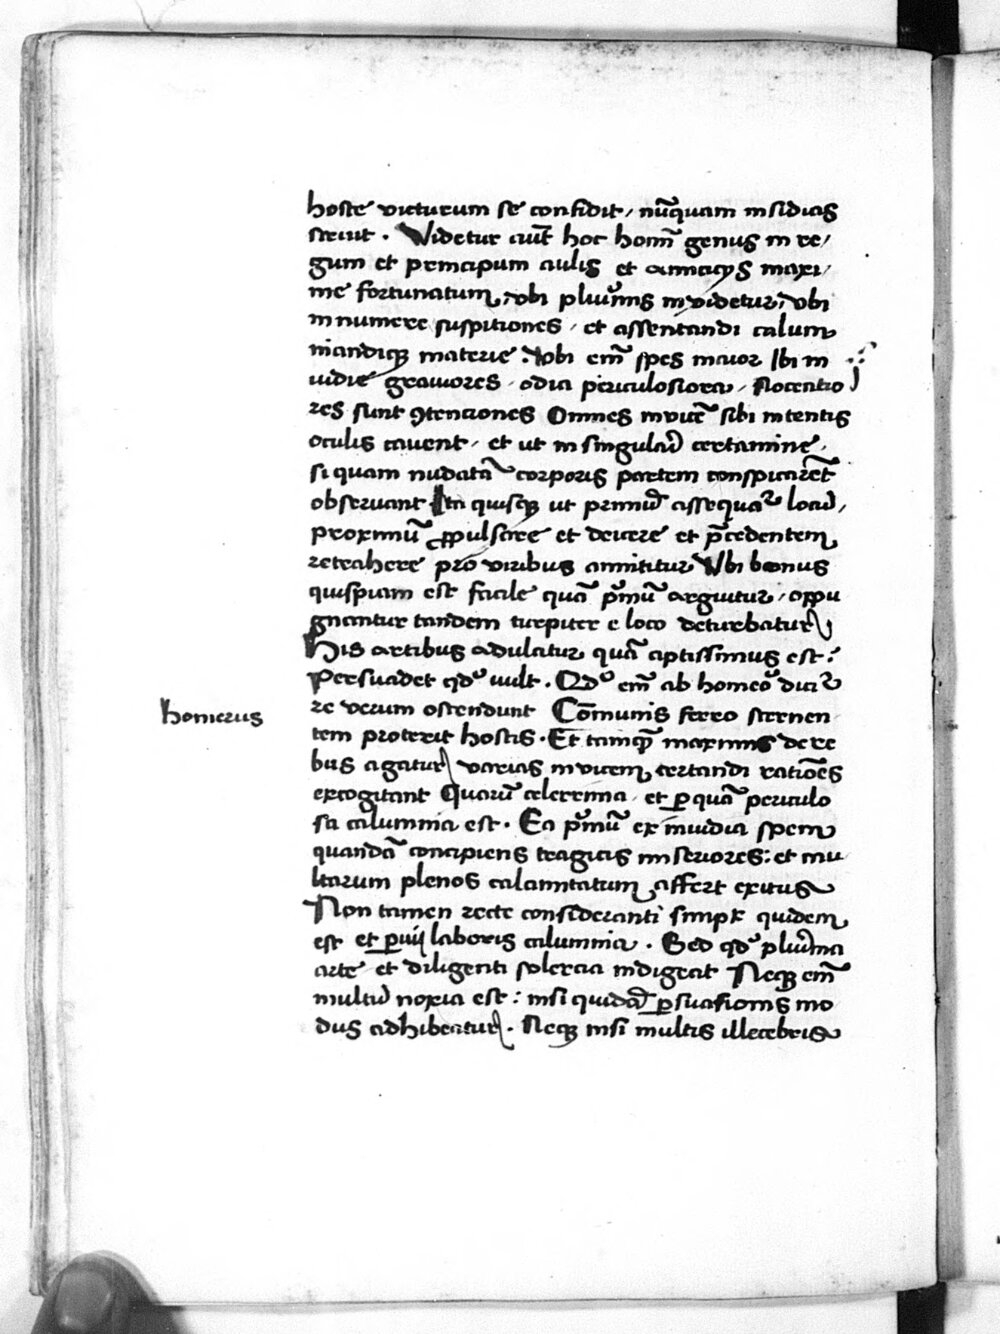 hoste victurum se confidit / nũquam insidias
struit . Videtur aut̃ hoc homĩ genus in re/
gum et principum aulis et amicicijs maxi/
me fortunatum, vbi pluriᵐis inuidetur, vbi
innumere suspitiones / et assentandi calum
niandiqꝫ materie . vbi em̃ spes maior Ibi in
uidie grauiores / odia periculosiora / Nocentio
res sunt ꝯtenciones Omnes inuicẽ sibi intentis
oculis cauent / et ut in singulari certamine /
si quam nudatã corporis partem conspicarẽt
observant Ita quisqꝫ ut primũ assequat̃ locũ,
proximũ propulsare et deicere et p̃cedentem
retrahere pro viribus annititur Vbi bonus
quispiam est facile quã p̃mũ arguitur / oppu
gnantur tandem turpiter e loco deturbatur
His artibus adulatur quã aptissimus est :
Persuadet qdᵒ uult . Qdᵒ em̃ ab homeᵒ dici
homerus
re verum ostendunt Cõmunis ferro sternen
tem proterit hostis . Et tamqꝫ maximis de re
bus agatur varias inuicem certandi ratiões
excogitant Quarũ celerrima / et ꝑquã periculo
sa calumnia est . Ea p̃mũ ex inuidia spem
quandã concipiens tragicis miseriores : et mu
ltarum plenos calamitatum affert exitus
Non tamen recte consideranti simplex quidem
est et ꝑuij laboris calumnia . Sed qdᵒ plurima
arte et diligenti solercia indigeat Neqꝫ em̃
multũ noxia est : nisi quidã ꝑsuasionis mo
dus adhibeatur . Neqꝫ nisi multis illecebris